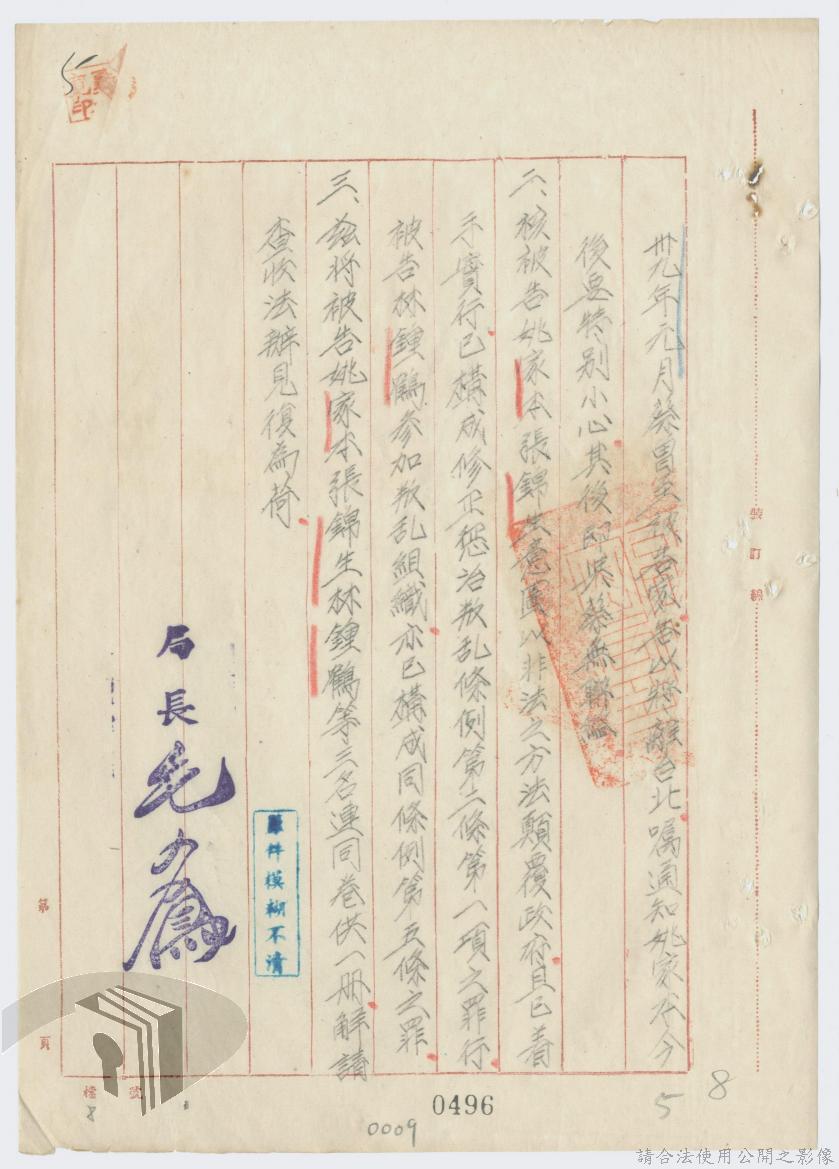 卅九年元月蔡冒至被告家告以將離台北囑通知姚家本今
後要特別小心其後即與蔡無聯絡
二、核被告姚家本張錦生意圖以非法之方法顛覆政府且已着
手實行已構成修正懲治叛乱條例第二條第一項之罪行
被告林鍾鶚參加叛乱組織亦已構成同條例第五條之罪
三、茲將被告姚家本張錦生林鍾鶚等三名連同卷供一册解請
查收法辦見復為荷
局長毛
原件模糊不清
裝訂線
第 頁
檔 號
8
0496
0009
5
8
請合法使用公開之影像